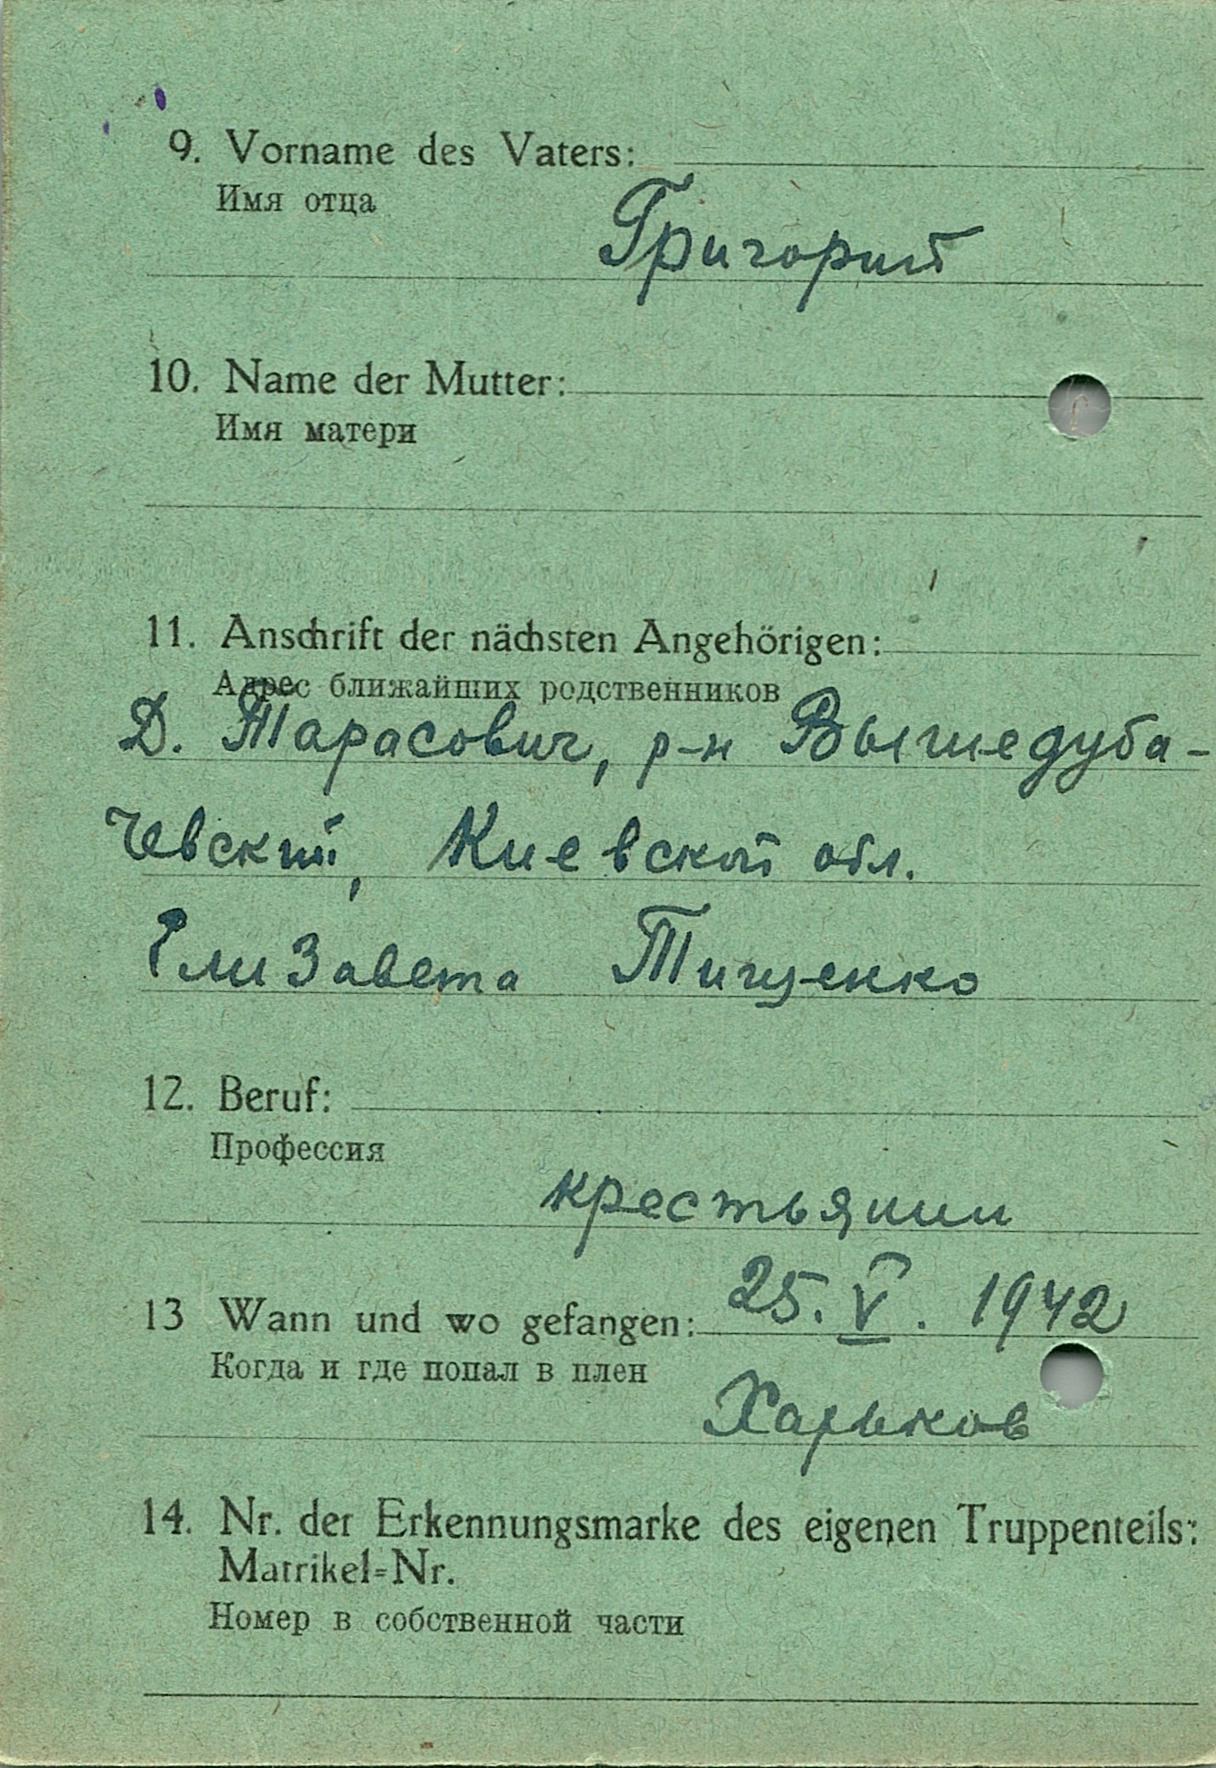 9. Vorname des Vaters:
Имя отца
Григорий
10. Name der Mutter:
Имя матери
11. Anschrift der nächsten Angehörigen:
Адрес ближайших родственников
Д. Тарасович, р-н Вышедуба-
чевский, Киевской обл.
Елизавета Тищенко
12. Beruf:
Профессия
крестьянин
13 Wann und wo gefangen: 25. V. 1942
Когда и где попал в плен
Харьков
14. Nr. der Erkennungsmarke des eigenen Truppenteils:
Matrikel=Nr.
Номер в собственной части